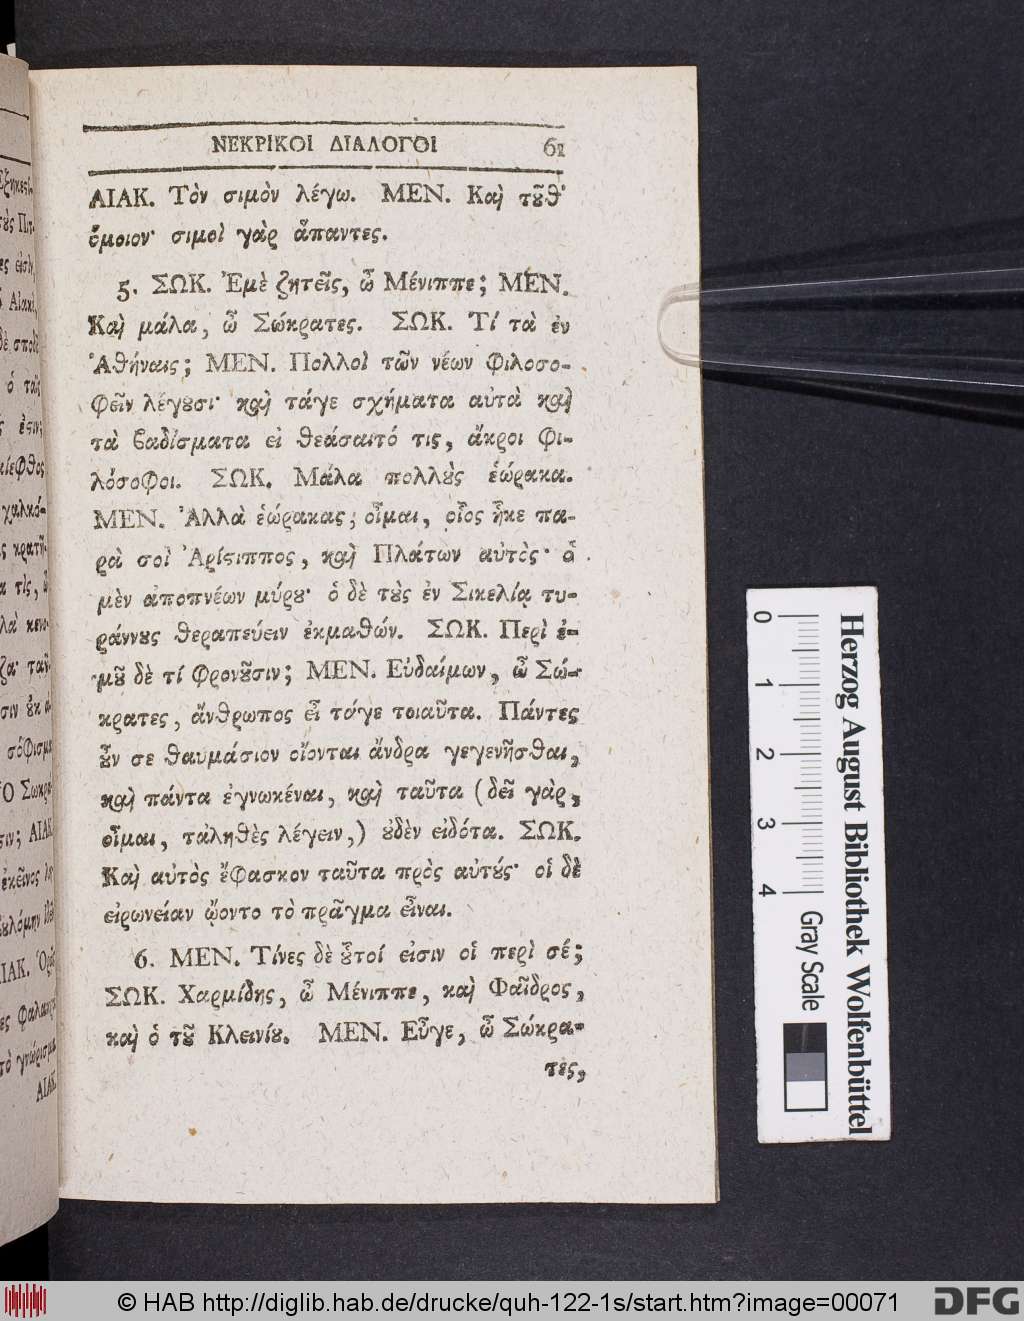 ΝΕΚΡΙΚΟΙ ΔΙΑΛΟΓΟΙ 61
ΑΙΑΚ. Τὸν σιμὸν λέγω. ΜΕΝ. Καὶ τȣ͂θ'
ὅμοιον· σιμοὶ γὰρ ἅπαντες.
5. ΣΩΚ. Ἐμὲ ζητεῖς, ὦ Μένιππε; ΜΕΝ.
Καὶ μάλα, ὦ Σώκρατες. ΣΩΚ. Τί τὰ ἐν
Ἀθήναις; ΜΕΝ. Πολλοὶ τῶν νέων φιλοσο-
φεῖν λέγȣσι· καὶ τάγε σχήματα αὐτὰ καὶ
τὰ βαδίσματα εἰ θεάσαιτό τις, ἄκροι φι-
λόσοφοι. ΣΩΚ. Μάλα πολλȣ̀ς ἑώρακα.
ΜΕΝ. Ἀλλὰ ἑώρακας, οἶμαι, οἷος ἧκε πα-
ρὰ σοὶ Ἀρίϛιππος, καὶ Πλάτων αὐτὸς· ὁ
μὲν ἀποπνέων μύρȣ· ὁ δὲ τȣ̀ς ἐν Σικελίᾳ τυ-
ράννȣς θεραπεύειν ἐκμαθών. ΣΩΚ. Περὶ ἐ-
μȣ͂ δὲ τί φρονȣ͂σιν; ΜΕΝ. Εὐδαίμων, ὦ Σώ-
κρατες, ἄνθρωπος εἶ τάγε τοιαῦτα. Πάντες
ȣ̓͂ν σε θαυμάσιον οἴονται ἄνδρα γεγενῆσθαι,
καὶ πάντα ἐγνωκέναι, καὶ ταῦτα (δεῖ γὰρ,
οἶμαι, τἀληθὲς λέγειν,) ȣ̓δὲν εἰδότα. ΣΩΚ.
Καὶ αὐτὸς ἔφασκον ταῦτα πρὸς αὐτȣ́ς· οἱ δὲ
εἰρωνείαν ᾤοντο τὸ πρᾶγμα εἶναι.
6. ΜΕΝ. Τίνες δὲ ȣ̔͂τοί εἰσιν οἱ περὶ σέ;
ΣΩΚ. Χαρμίδης, ὦ Μένιππε, καὶ Φαῖδρος,
καὶ ὁ τȣ͂ Κλεινίȣ. ΜΕΝ. Εὖγε, ὦ Σώκρα-
τες,
0 1 2 3 4
Gray Scale
Herzog August Bibliothek Wolfenbüttel
© HAB http://diglib.hab.de/drucke/quh-122-1s/start.htm?image=00071
DFG